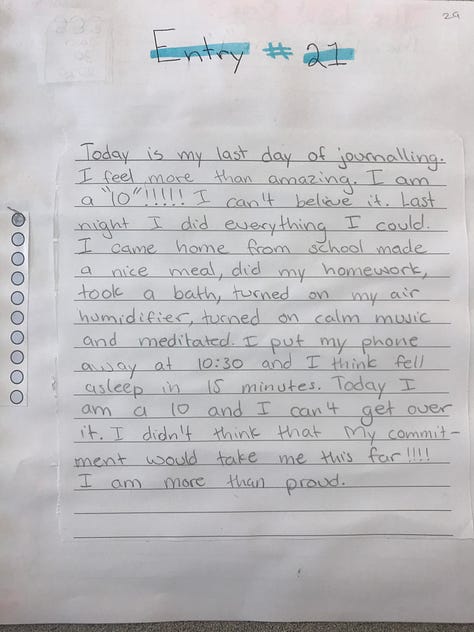 29
Entry # 21
Today is my last day of journalling.
I feel more than amazing. I am
a "10"!!!!! I can't believe it. Last
night I did everything I could.
I came home from school made
a nice meal, did my homework,
took a bath, turned on my air
humidifier, turned on calm music
and meditated. I put my phone
away at 10:30 and I think fell
asleep in 15 minutes. Today I
am a 10 and I can't get over
it. I didn't think that My commit-
ment would take me this far!!!!
I am more than proud.